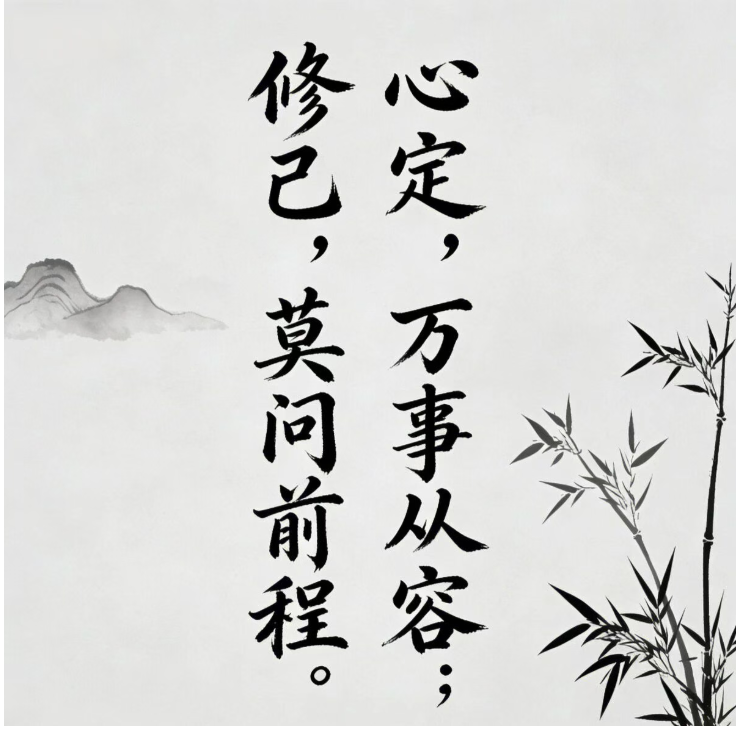 心定，万事从容；
修己，莫问前程。